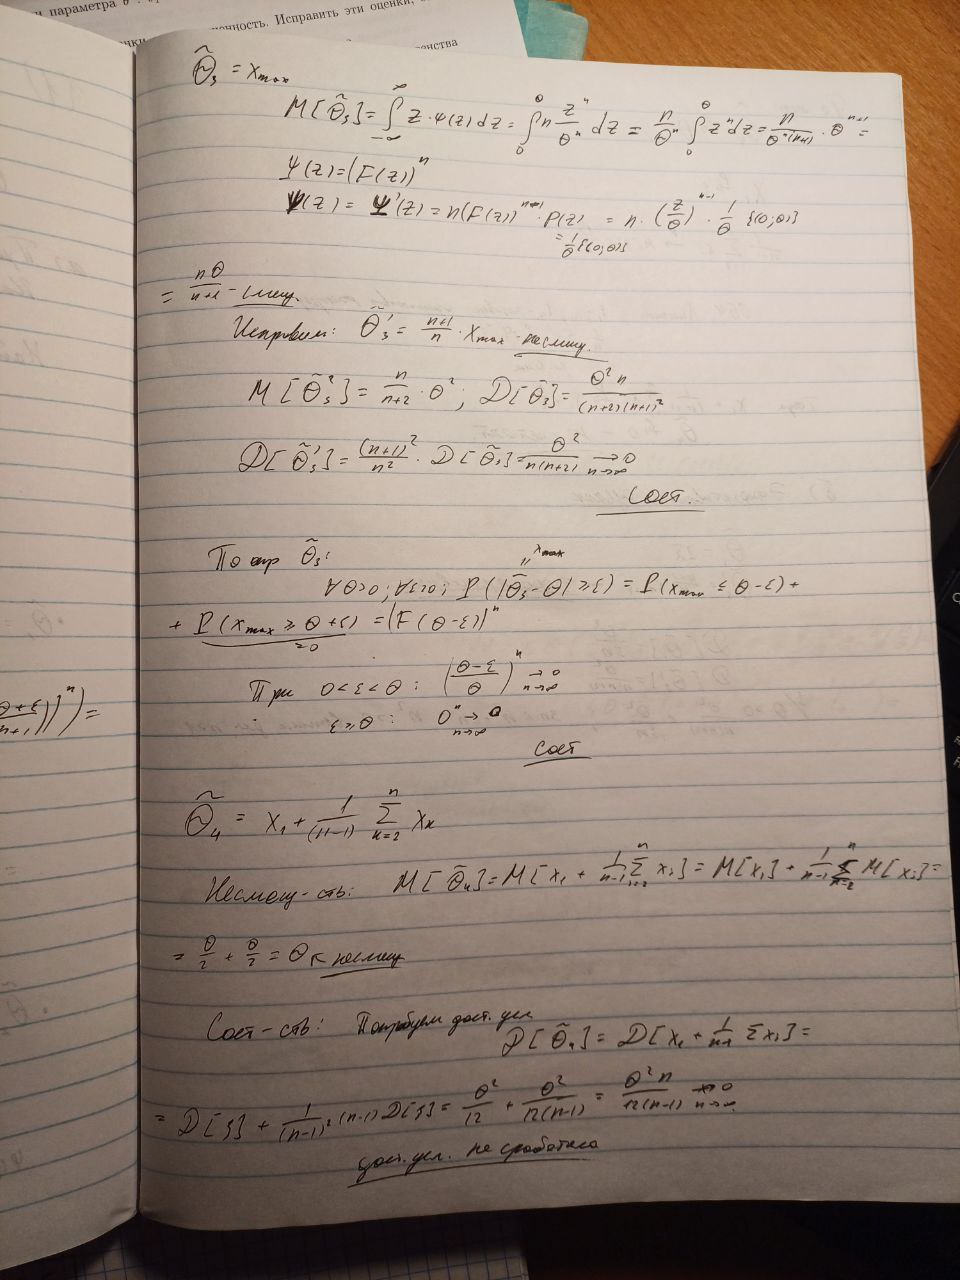 и параметра θ
ность. Исправить эти оценки,
θ̃₃ = x_max
M[θ̃₃] = ∫_{-∞}^{∞} z·ψ(z)dz = ∫_0^θ n z^n/θ^n dz = n/θ^n ∫_0^θ z^n dz = n/(θ^n(n+1)) · θ^{n+1} =
Ψ(z) = (F(z))^n
ψ(z) = Ψ'(z) = n(F(z))^{n-1}·P(z) = n·(z/θ)^{n-1} · 1/θ {(0;θ)}
= 1/θ {(0;θ)}
= nθ/(n+1) - смещ.
Исправим: θ̃₃' = (n+1)/n · x_max - несмещ.
M[θ̃₃²] = n/(n+2) · θ²; D[θ̃₃] = θ²n/((n+2)(n+1)²)
D[θ̃₃'] = (n+1)²/n² · D[θ̃₃] = θ²/(n(n+2)) →_{n→∞} 0
сост.
По опр θ̃₃:
x_max
∀θ>0; ∀ε>0; P(|θ̃₃-θ| ≥ ε) = P(x_max ≤ θ-ε) +
+ P(x_max ≥ θ+ε) = (F(θ-ε))^n
=0
При 0<ε<θ: ((θ-ε)/θ)^n →_{n→∞} 0
ε≥θ: 0^n →_{n→∞} 0
сост
θ̃₄ = x₁ + 1/(n-1) Σ_{k=2}^{n} x_k
Несмещ-ть: M[θ̃₄] = M[x₁ + 1/(n-1) Σ_{i=2}^{n} x_i] = M[x₁] + 1/(n-1) Σ_{k=2}^{n} M[x_i] =
= θ/2 + θ/2 = θ ⇐ несмещ
Сост-сть: Попробуем дост. усл
D[θ̃₄] = D[x₁ + 1/(n-1) Σx_i] =
= D[ξ] + 1/(n-1)² (n-1) D[ξ] = θ²/12 + θ²/(12(n-1)) = θ²n/(12(n-1)) ↛_{n→∞} 0
дост. усл. не сработало